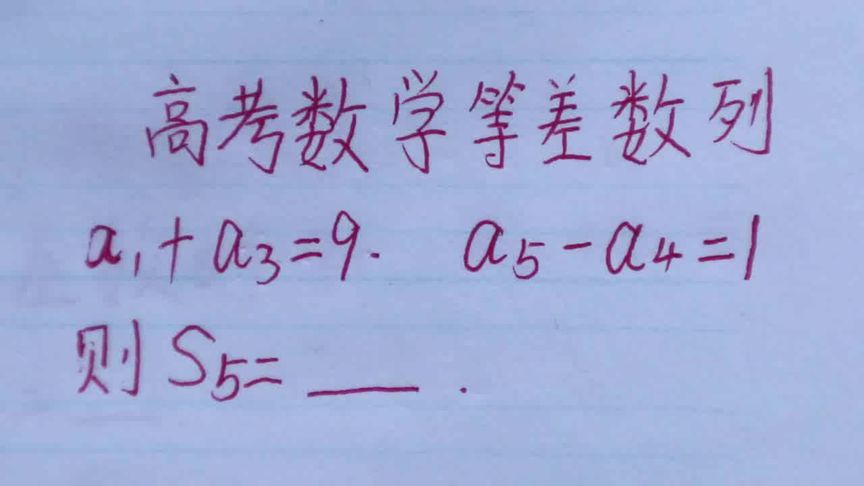 高考数学等差数列
a₁+a₃=9. a₅-a₄=1
则S₅=___.